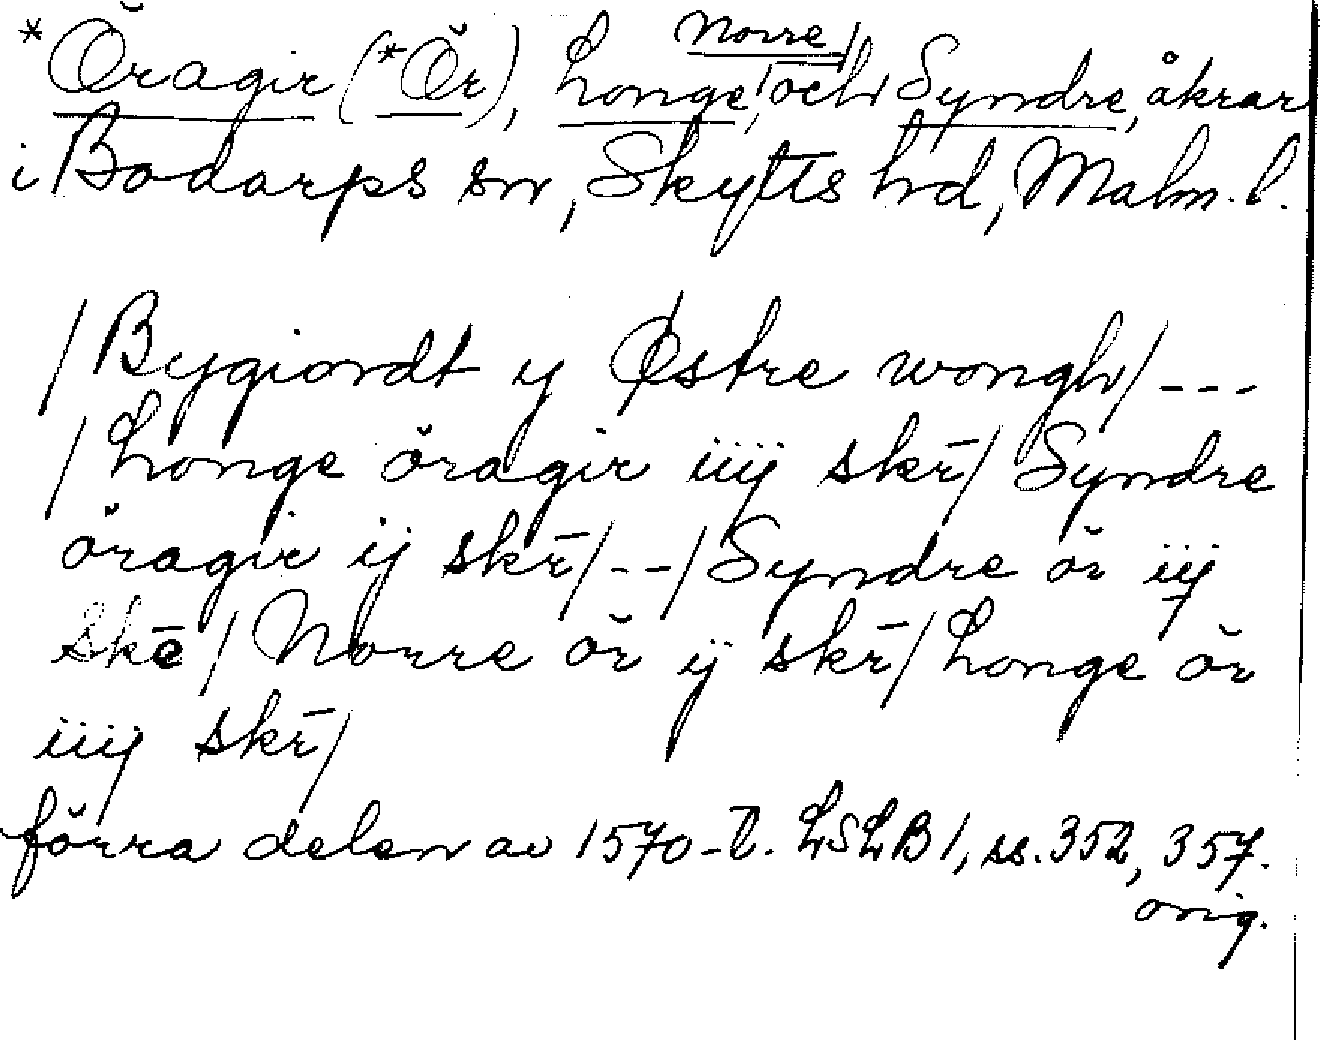 *Öragir (*Ör), Longe, Norre och Syndre, åkrar
i Bodarps sn, Skytts hd, Malm. l.
/Bygiordt y Østre wongh/---
/Longe öragir iiij skr̄/ Syndre
öragir ij skr̄/--/Syndre ör iij
skē/Norre ör ij skr̄/Longe ör
iiij skr̄/
förra delen av 1570-t. LSLB 1, ss. 352, 357.
orig.